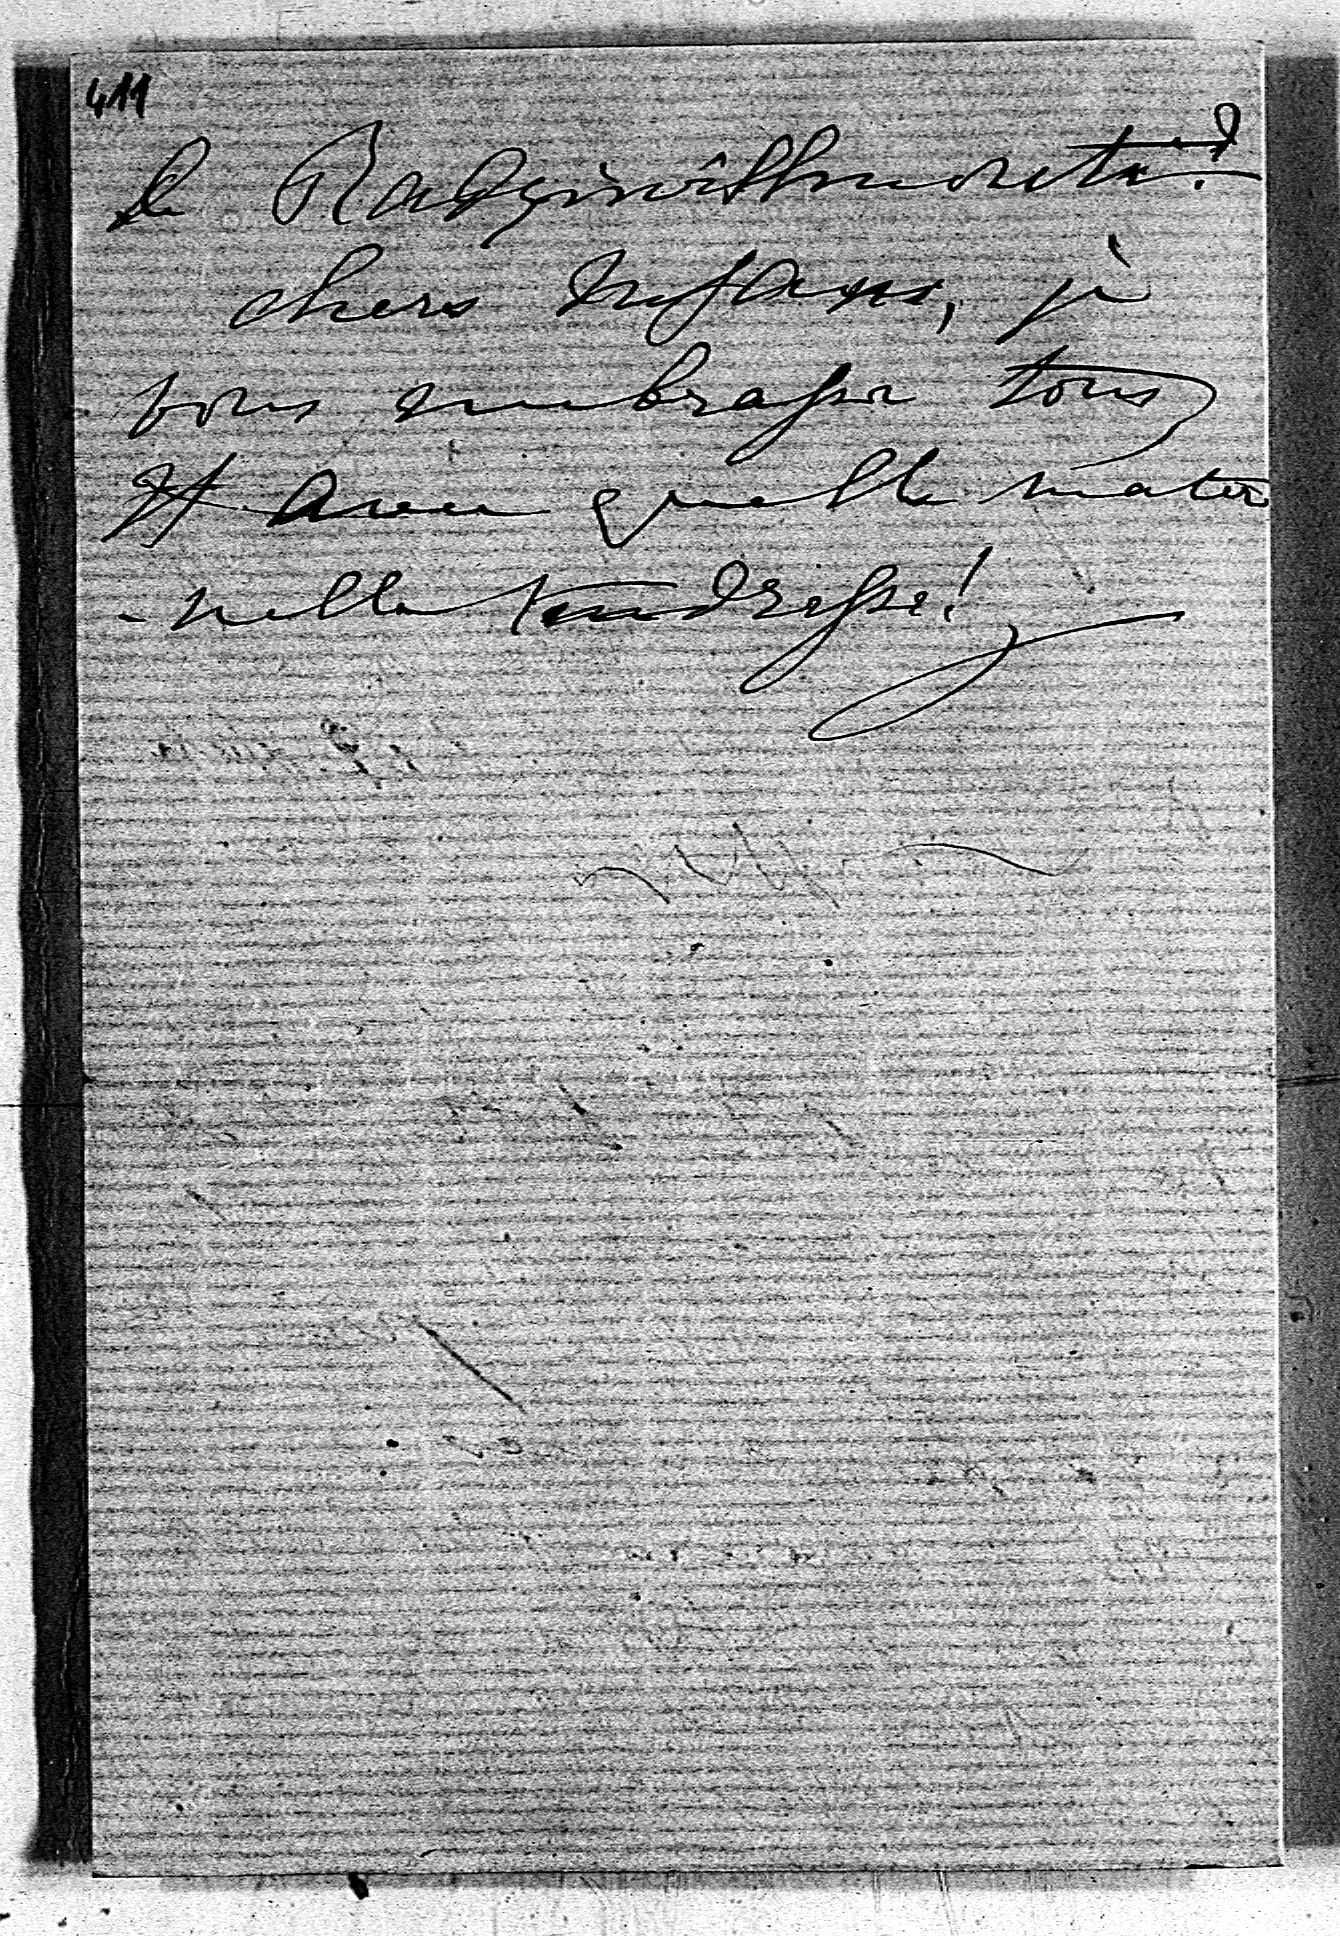 411
le Radziwill
chers enfans, je
vous embrasse tous
et avec quelle mater
-nelle tendresse!